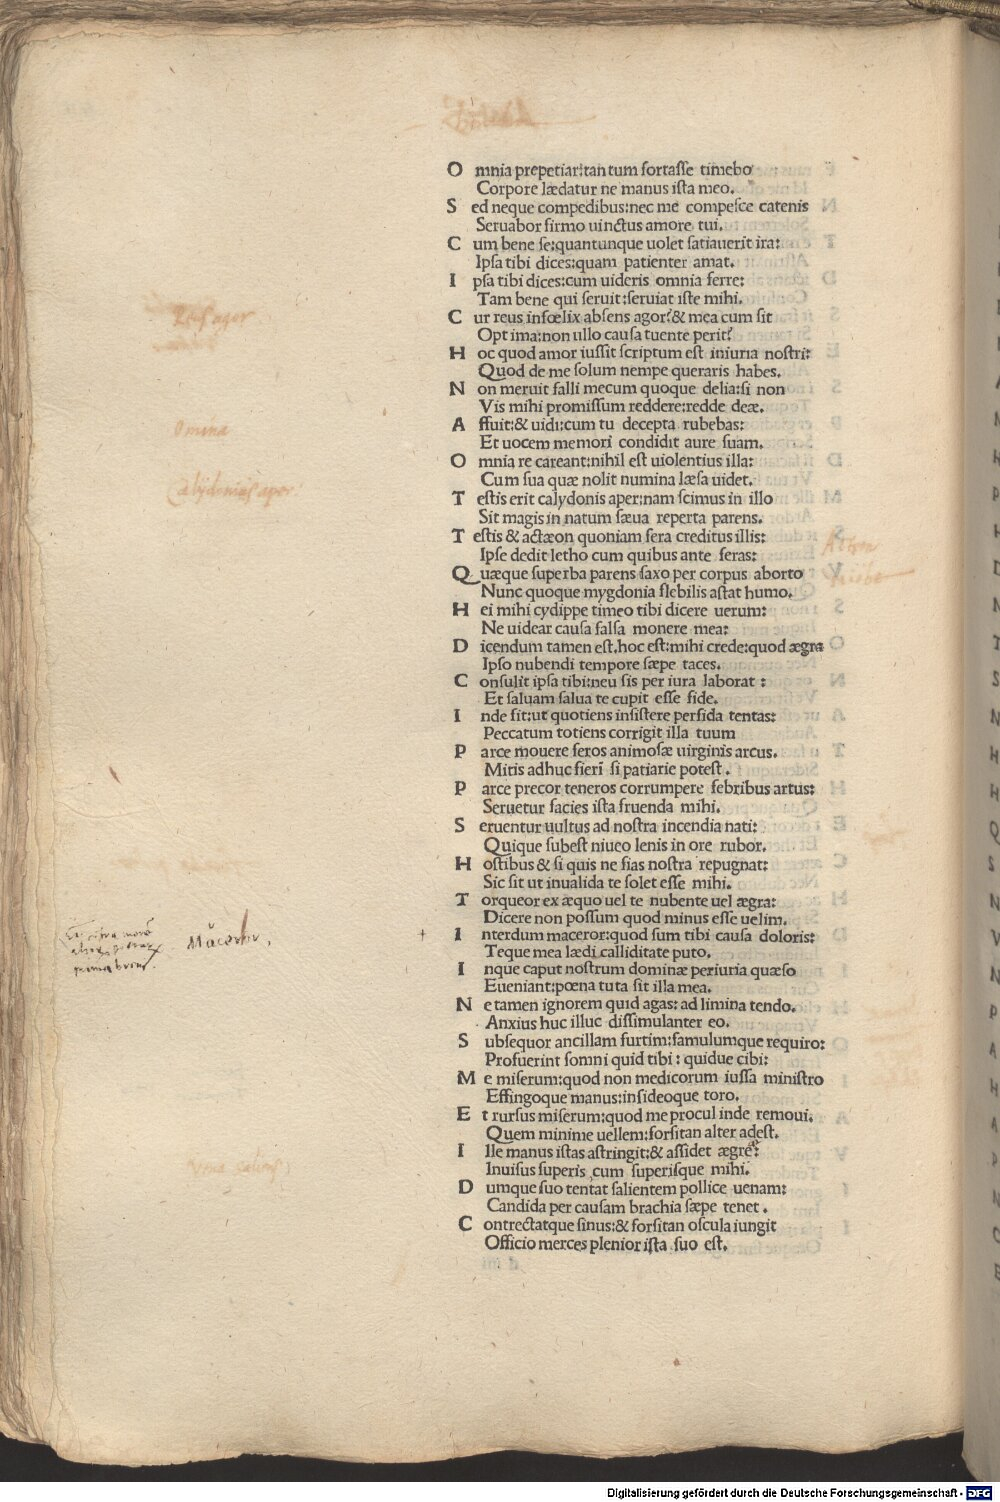 O mnia prepetiar:tan tum fortasse timebo
Corpore lædatur ne manus ista meo.
S ed neque compedibus:nec me compesce catenis
Seruabor firmo uinctus amore tui.
C um bene se:quantunque uolet satiauerit ira:
Ipsa tibi dices:quam patienter amat.
I psa tibi dices:cum uideris omnia ferre:
Tam bene qui seruit:seruiat iste mihi.
C ur reus infœlix absens agor?& mea cum sit
Optima:non ullo causa tuente perit?
H oc quod amor iussit scriptum est iniuria nostri:
Quod de me solum nempe queraris habes.
N on meruit falli mecum quoque delia:si non
Vis mihi promissum reddere:redde deæ.
A ffuit:& uidi:cum tu decepta rubebas:
Et uocem memori condidit aure suam.
O mnia re careant:nihil est uiolentius illa:
Cum sua quæ nolit numina læsa uidet.
T estis erit calydonis aper:nam scimus in illo
Sit magis in natum sæua reperta parens.
T estis & actæon quoniam fera creditus illis:
Ipse dedit letho cum quibus ante feras:
Q uæque superba parens saxo per corpus aborto
Nunc quoque mygdonia flebilis astat humo.
H ei mihi cydippe timeo tibi dicere uerum:
Ne uidear causa falsa monere mea:
D icendum tamen est.hoc est:mihi crede:quod ægra
Ipso nubendi tempore sæpe taces.
C onsulit ipsa tibi:neu sis per iura laborat :
Et saluam salua te cupit esse fide.
I nde fit:ut quotiens insistere perfida tentas:
Peccatum totiens corrigit illa tuum
P arce mouere feros animosæ uirginis arcus.
Mitis adhuc fieri si patiarie potest.
P arce precor teneros corrumpere febribus artus:
Seruetur facies ista fruenda mihi.
S eruentur uultus ad nostra incendia nati:
Quique subest niueo lenis in ore rubor.
H ostibus & si quis ne fias nostra repugnat:
Sic sit ut inualida te solet esse mihi.
T orqueor ex æquo uel te nubente uel ægra:
Dicere non possum quod minus esse uelim.
I nterdum maceror:quod sum tibi causa doloris:
Teque mea lædi calliditate puto.
I nque caput nostrum dominæ periuria quæso
Eueniant:pœna tuta sit illa mea.
N e tamen ignorem quid agas: ad limina tendo.
Anxius huc illuc dissimulanter eo.
S ubsequor ancillam furtim:famulumque requiro:
Profuerint somni quid tibi : quidue cibi:
M e miserum:quod non medicorum iussa ministro
Effingoque manus:insideoque toro.
E t rursus miserum:quod me procul inde remoui.
Quem minime uellem:forsitan alter adest.
I lle manus istas astringit:& assidet ægre:
Inuisus superis cum superisque mihi.
D umque suo tentat salientem pollice uenam:
Candida per causam brachia sæpe tenet .
C ontrectatque sinus:& forsitan oscula iungit
Officio merces plenior ista suo est.
Reus agor
Omnia
Calydonius aper
Acteon
Niobe
Maceror.
Vena saliens
Digitalisierung gefördert durch die Deutsche Forschungsgemeinschaft - DFG